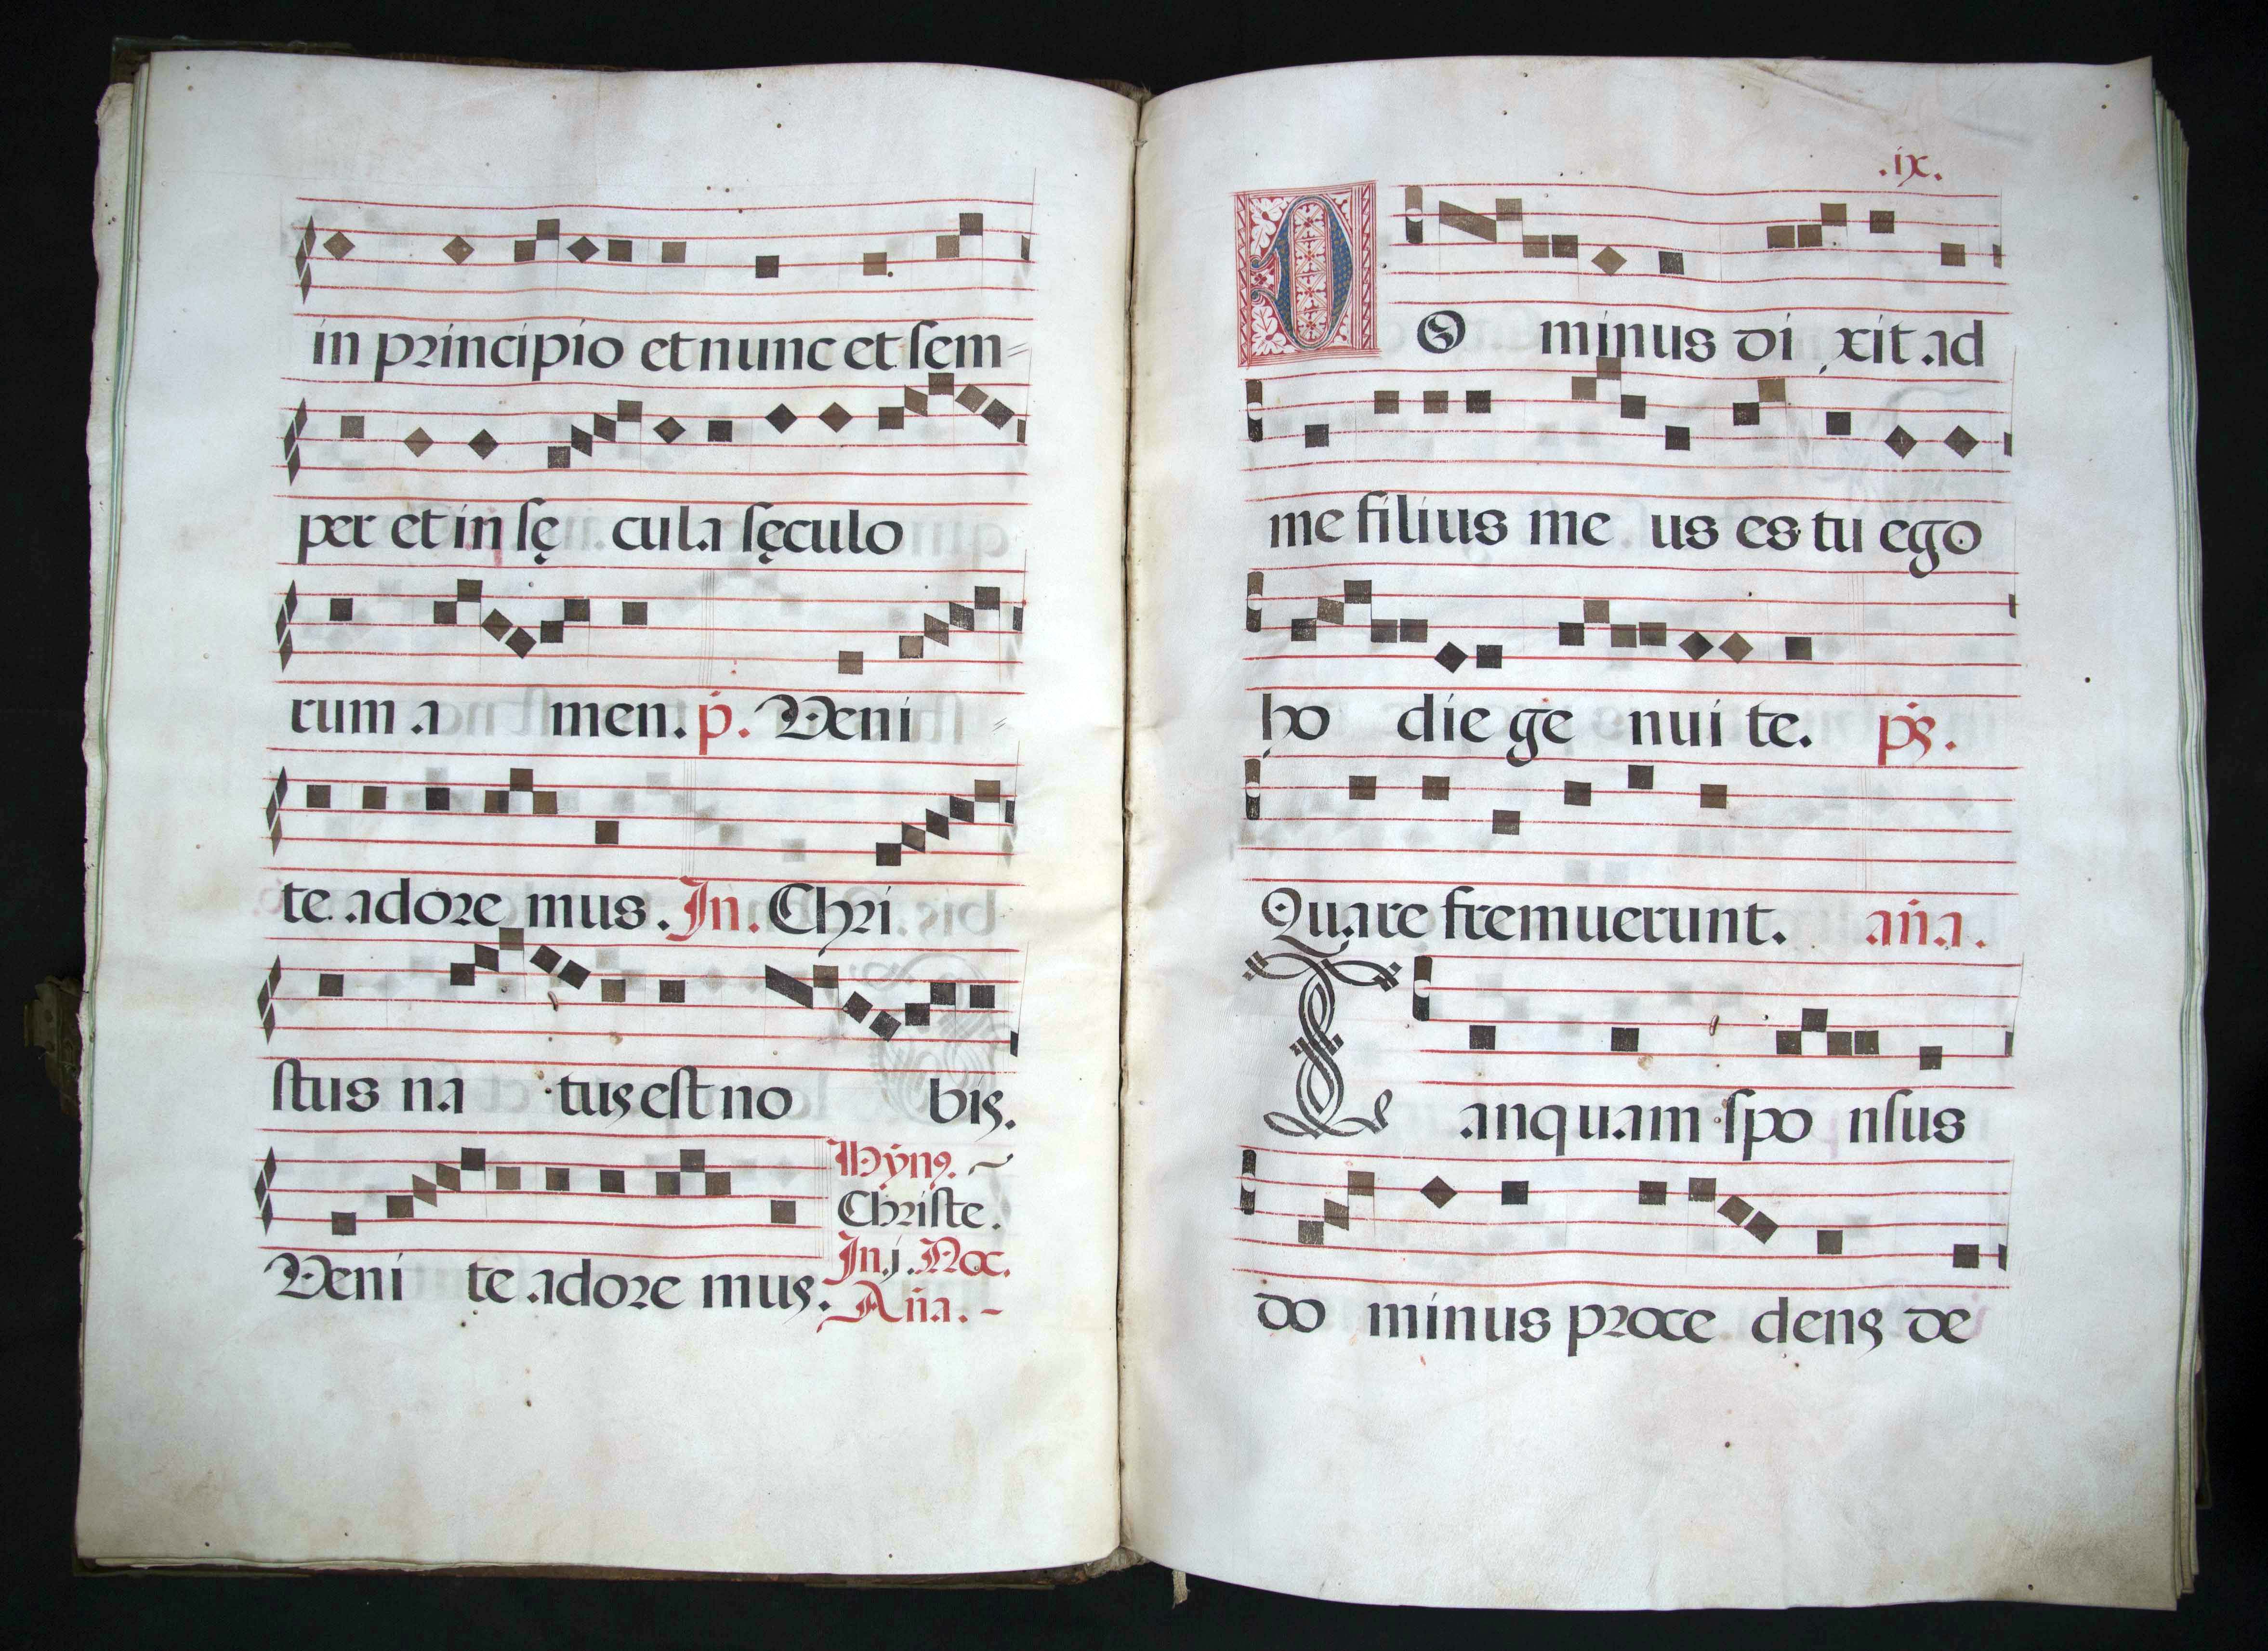 in principio et nunc et ſem=
per et in ſę cula ſęculo
rum a men. p. Veni =
te adore mus. In. Chri
ſtus na tus eſt no bis.
Hÿnꝰ. ~
Christe.
In.j.Noc.
Veni te adore mus. Aña. -
.ix.
DO minus di xit ad
me filius me us es tu ego
ho die ge nui te. pṡ.
Quare fremuerunt. aña.
Tanquam ſpo nſus
do minus proce dens de